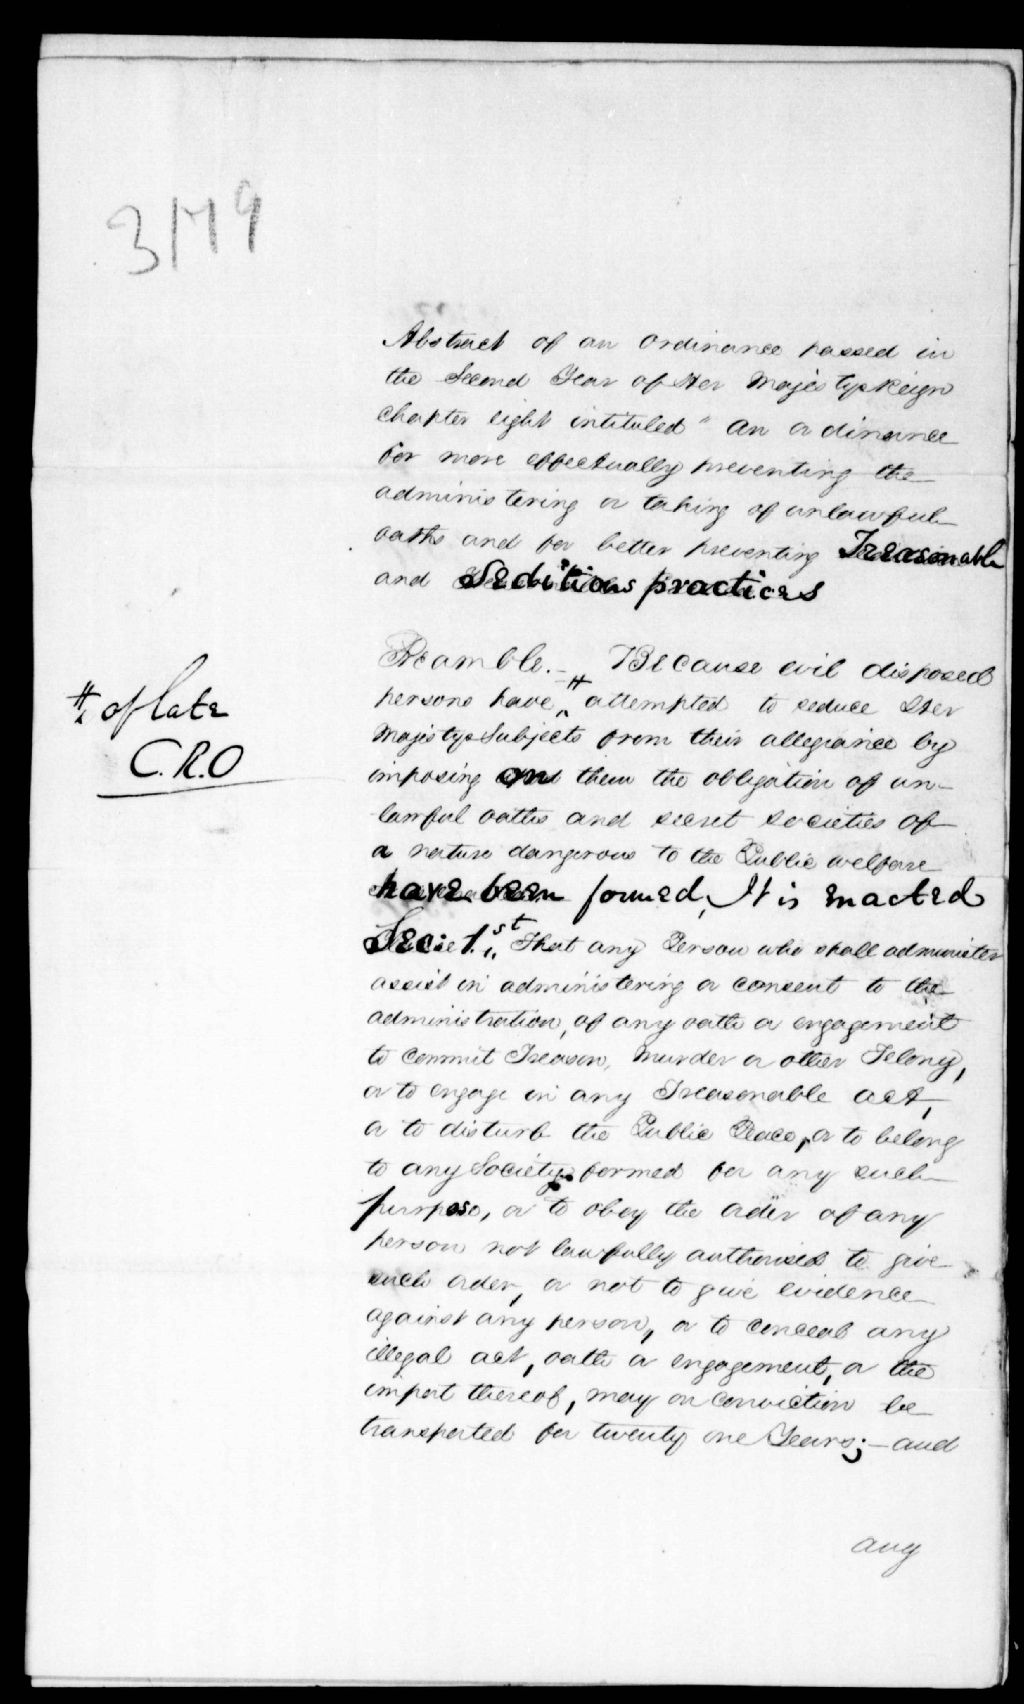 3179
Abstract of an Ordinance passed in
the Second Year of Her Majestys Reign
Chapter eight intituled "An Ordinance
for more effectually preventing the
administering or taking of unlawful
oaths and for better preventing Treasonable
and Seditious practices
Preamble. - Because evil disposed
persons have # attempted to seduce Her
# of late
Majestys Subjects from their allegiance by
C.R.O
imposing on them the obligation of un-
lawful oaths and secret societies of
a nature dangerous to the Public welfare
have been formed, It is enacted
Sec: 1.st That any Person who shall administer
assist in administering or consent to the
administration, of any oath or engagement
to commit Treason, Murder or other Felony,
or to engage in any Treasonable act,
or to disturb the Public Peace, or to belong
to any Society formed for any such
purpose, or to obey the order of any
person not lawfully authorised to give
such order, or not to give evidence
against any person, or to conceal any
illegal act, oath or engagement, or the
import thereof, may on conviction be
transported for twenty one Years; - and
any